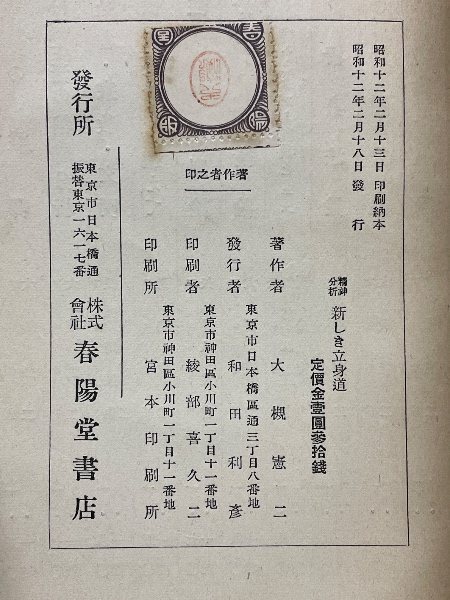 昭和十二年二月十三日 印刷納本
昭和十二年二月十八日 發行
精神分析 新しき立身道
定價金壹圓參拾錢
著作者 大槻憲二
東京市日本橋區通三丁目八番地
發行者 和田利彥
東京市神田區小川町一丁目十一番地
印刷者 綾部喜久二
東京市神田區小川町一丁目十一番地
印刷所 宮本印刷所
印之者作著
發行所
東京市日本橋通
振替東京一六一七番
株式會社 春陽堂書店